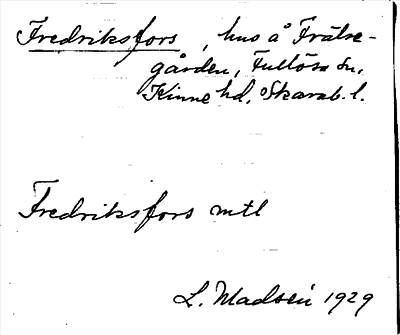 Fredriksfors, hus å Frälse-
gården, Fullösa sn,
Kinne hd, Skarab. l.
Fredriksfors mtl
L. Madsén 1929